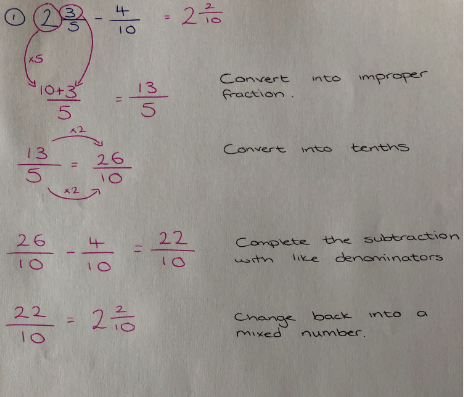 ① 2 3/5 - 4/10 = 2 2/10
×5
10+3/5 = 13/5
Convert into improper
fraction.
×2
13/5 = 26/10
×2
Convert into tenths
26/10 - 4/10 = 22/10
Complete the subtraction
with like denominators
22/10 = 2 2/10
Change back into a
mixed number.